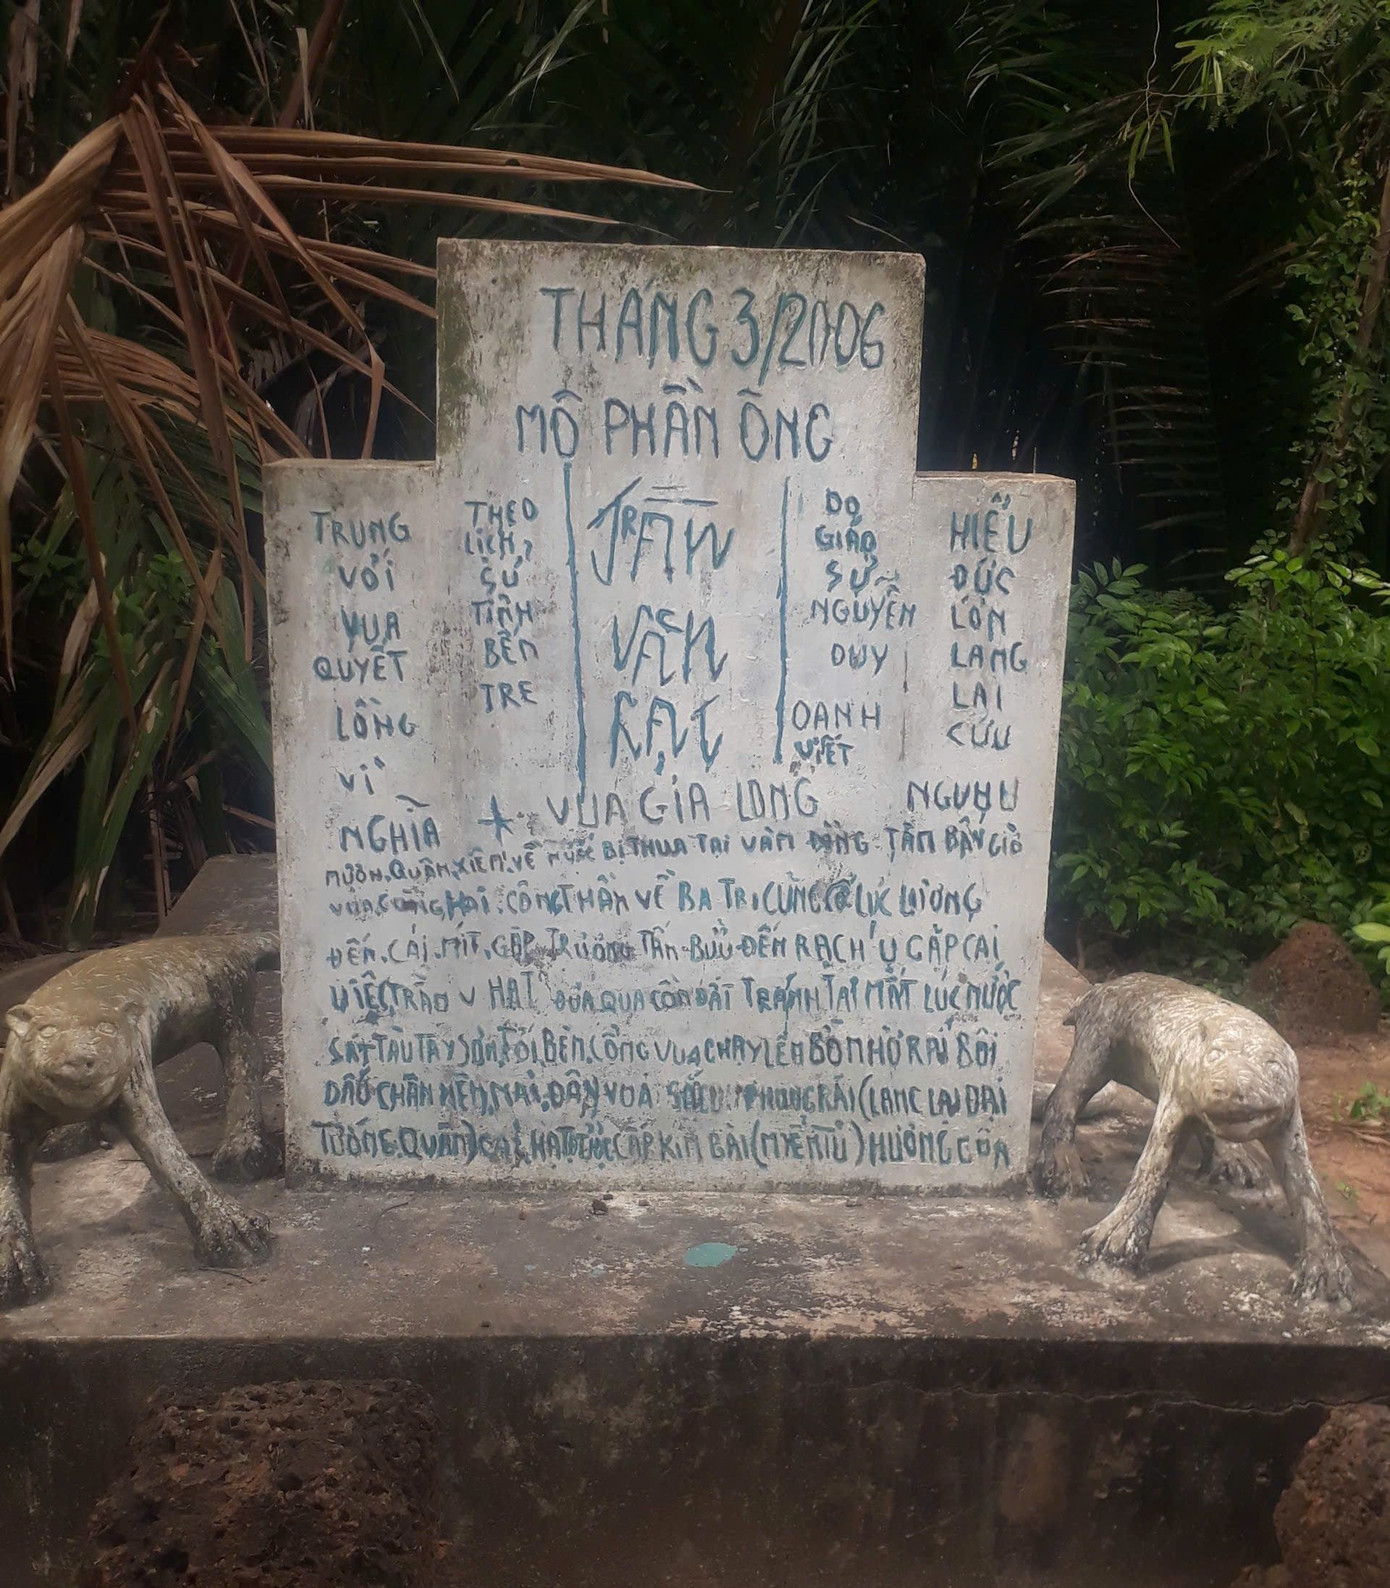 THÁNG 3/2006
MỘ PHẦN ÔNG
TRUNG
VỚI
VUA
QUYẾT
LÒNG
VÌ
NGHĨA
THEO
LỊCH
SỬ
TỈNH
BẾN
TRE
TRẦN
VĂN
RẠC
DO
GIÁO
SƯ
NGUYỄN
DUY
OANH
VIẾT
HIẾU
ĐỨC
LÒN
LANG
LAI
CỨU
NGUYU
VUA GIA LONG
MƯỢN QUÂN XIÊM VỀ NƯỚC BỊ THUA TẠI VÀM TÂN BÂY GIỜ
VUA CÙNG HAI CÔNG THẦN VỀ BA TRI CÙNG LÚC LƯỢNG
ĐẾN CÁI MÍT GẶP TRƯƠNG TẤN BỬU ĐẾN RẠCH Ụ GẶP CAI
VIỆC TRẦN V HẠT ĐƯA QUA CỒN ĐẤT TRÁNH TAI MẮT LÚC NƯỚC
SÁT TÀU TÂY SƠN TỚI BÊN CỒNG VUA CHẠY LÊN BỒN NHỜ RÁI BÔI
DẤU CHÂN NÊN MAI VUA PHONG RÁI (LANG LẠI ĐẠI
TƯỚNG QUÂN) CAI HẠT ĐƯỢC CẤP KIM BÀI (MIỄN TỬ) HƯỞNG